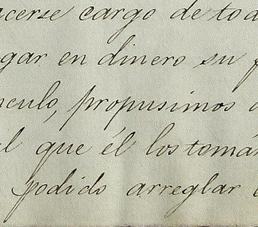 acerse cargo de tod
gar en dinero su f
culo, propusimos
l que él los tomá
podido arreglar